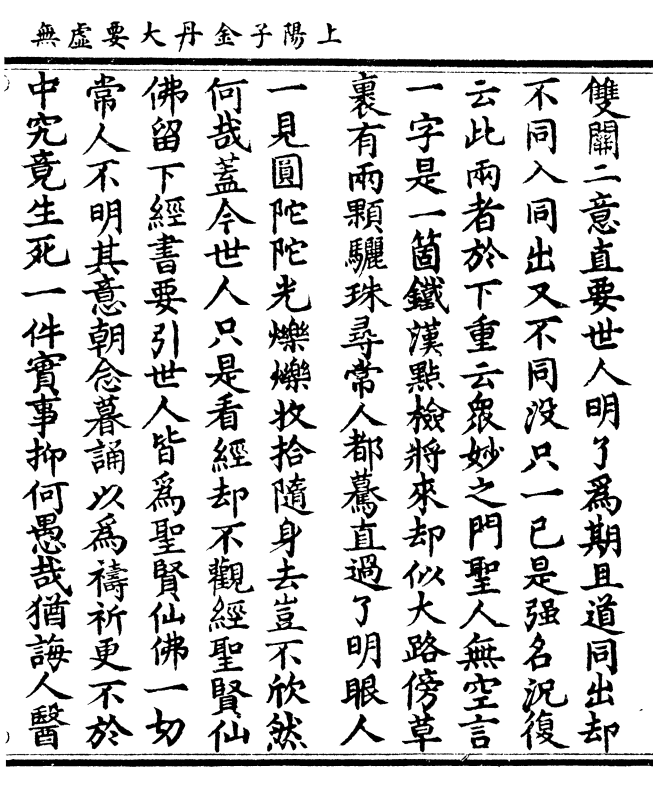 上陽子金丹大要虛無
雙關二意直要世人明了爲期且道同出却
不同入同出又不同没只一已是强名況復
云此兩者於下重云衆妙之門聖人無空言
一字是一箇鐵漢點檢將來却似大路傍草
裏有兩顆驪珠尋常人都驀直過了明眼人
一見圓陀陀光爍爍收拾隨身去豈不欣然
何哉蓋今世人只是看經却不觀經聖賢仙
佛留下經書要引世人皆爲聖賢仙佛一切
常人不明其意朝念暮誦以爲禱祈更不於
中究竟生死一件實事抑何愚哉猶誨人醫